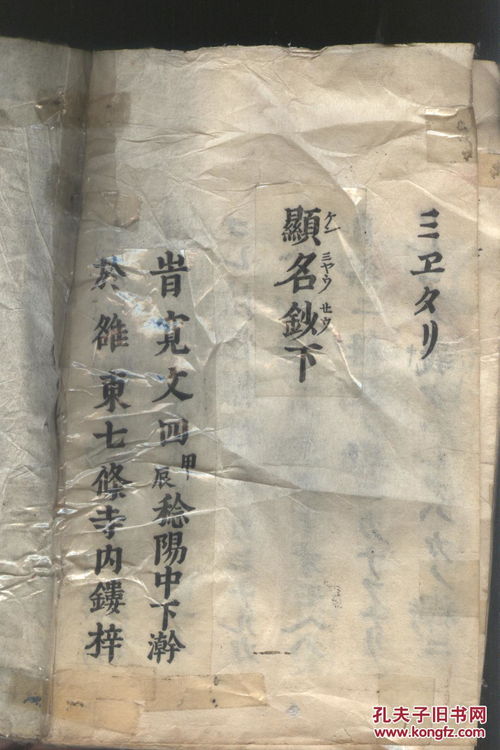 ミヱタリ
顯名鈔下
ケン ミヤウ セウ
旹寛文四甲辰稔陽中下澣
於雒東七條寺内鏤梓
孔夫子旧书网
www.kongfz.com